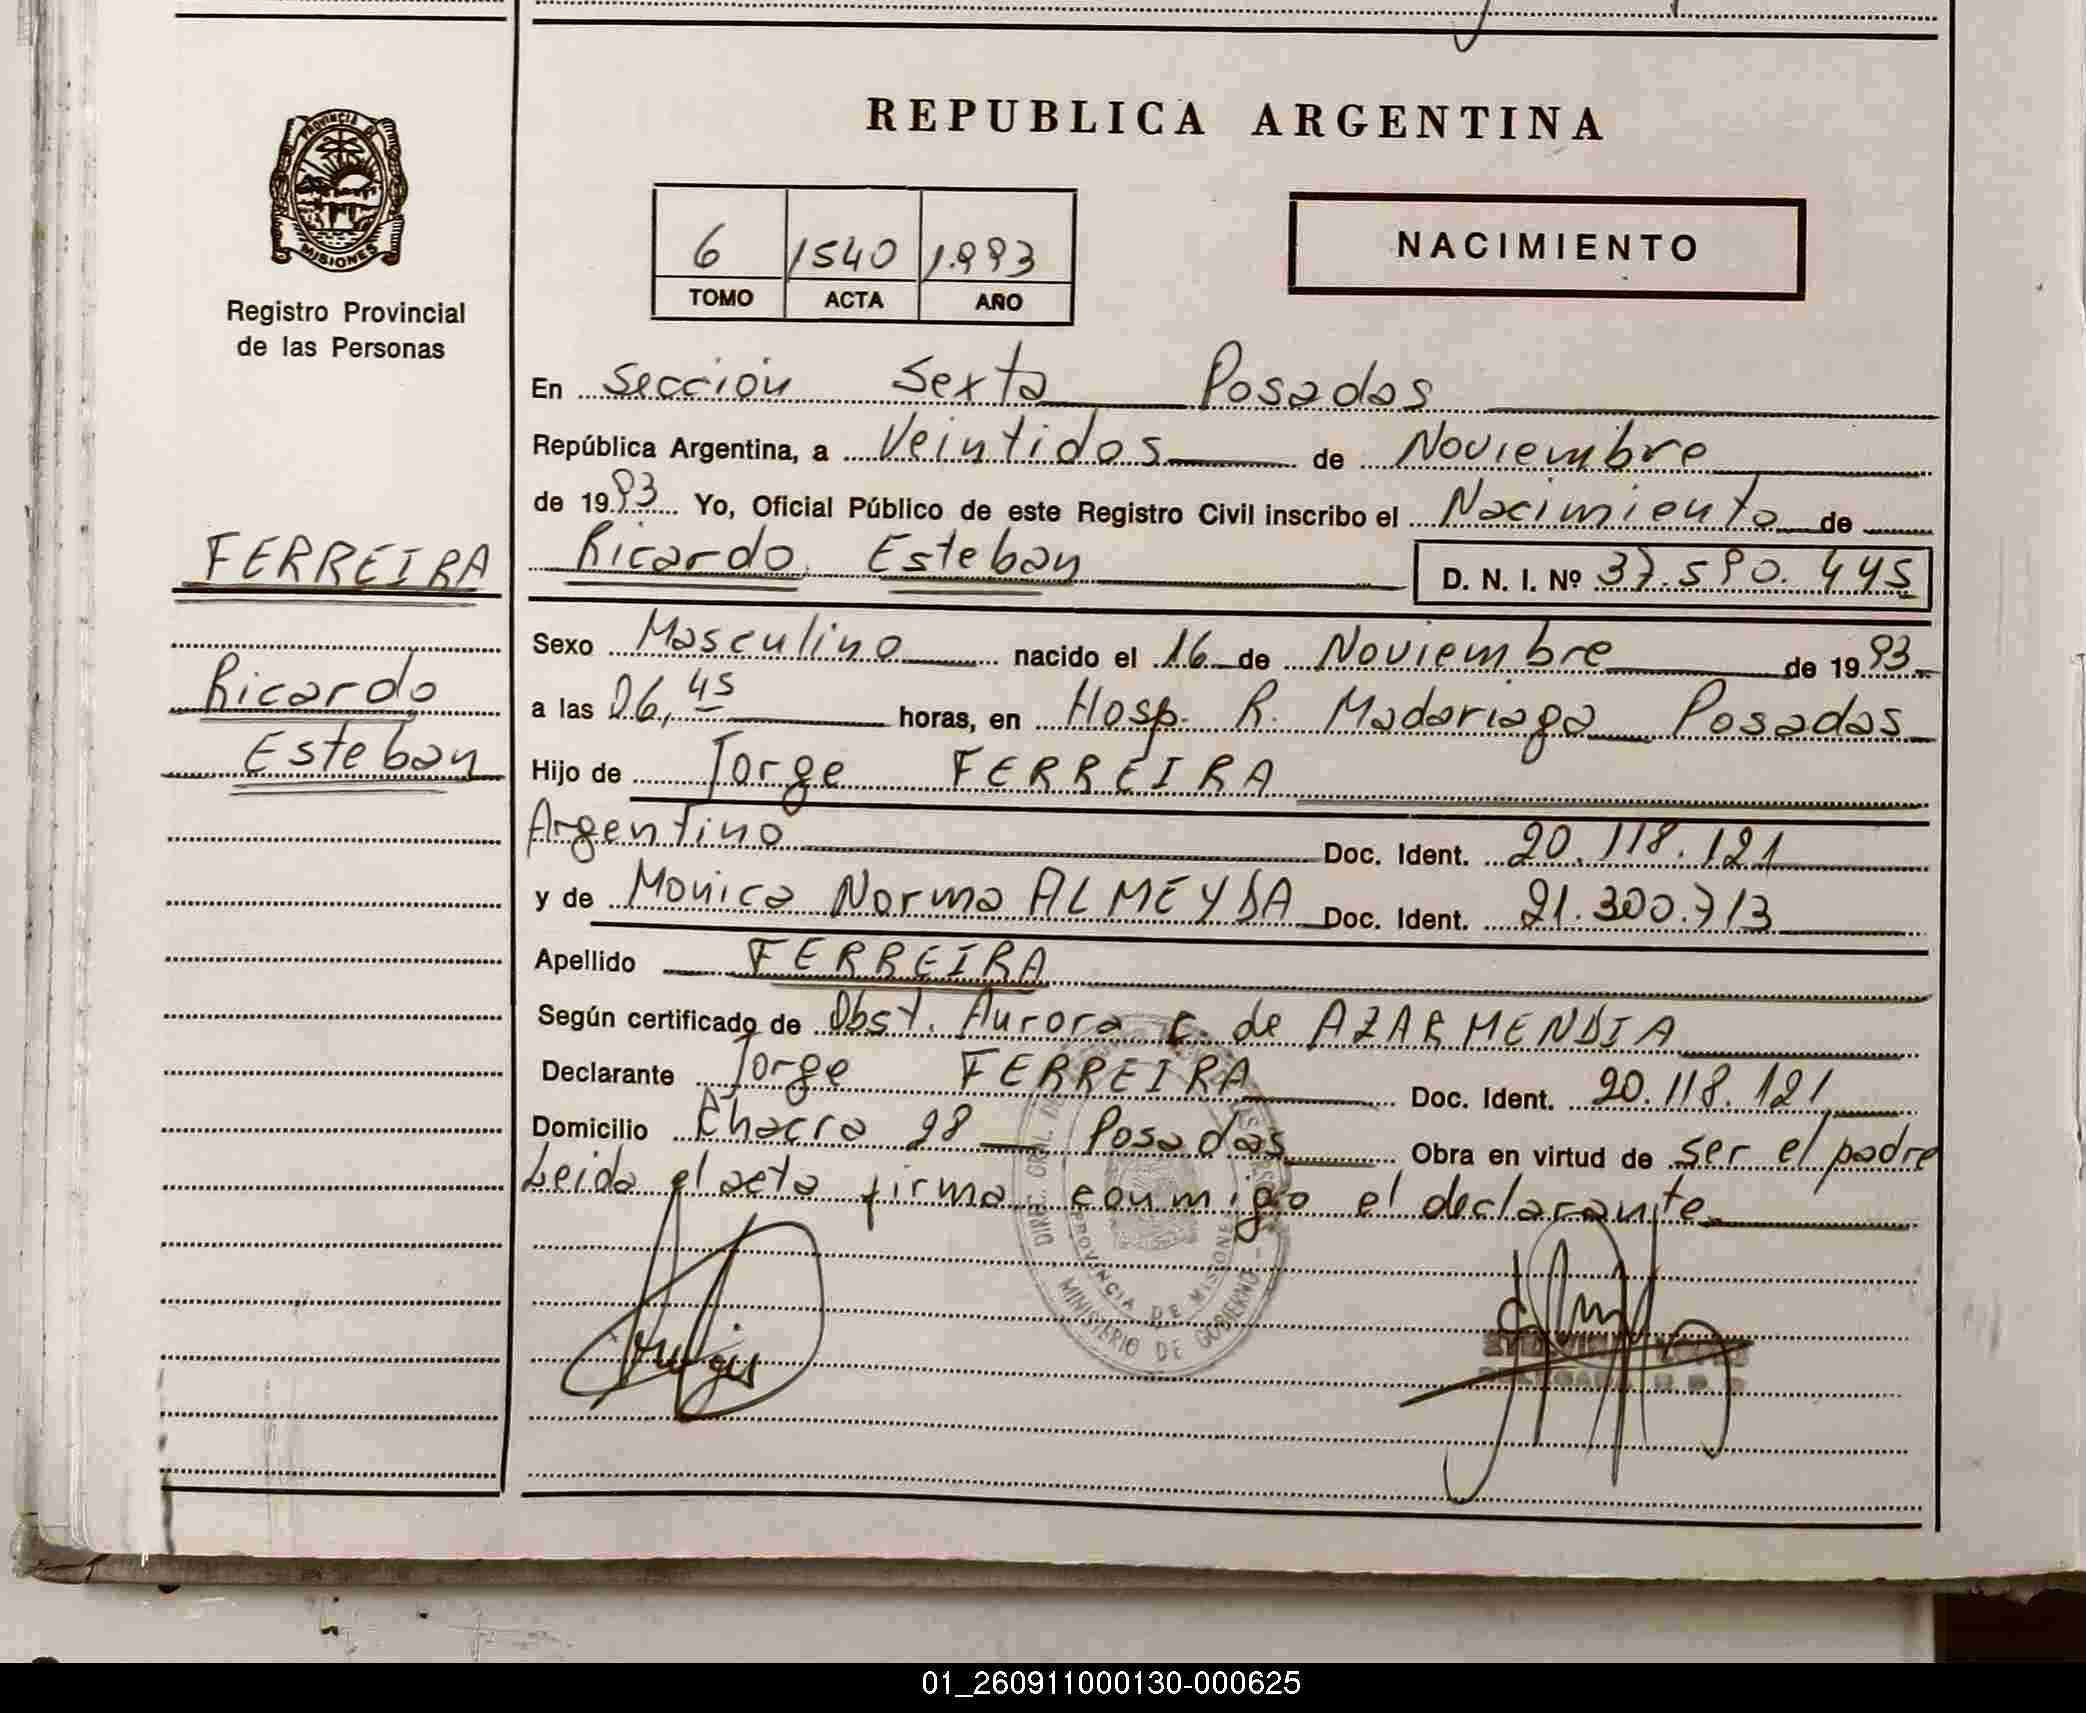 REPUBLICA ARGENTINA
PROVINCIA D
MISIONES
Registro Provincial
de las Personas
6 1540 1.993
TOMO ACTA AÑO
NACIMIENTO
En Sección Sexta Posadas
República Argentina, a Veintidos de Noviembre
de 1993 Yo, Oficial Público de este Registro Civil inscribo el Nacimiento de
FERREIRA
Ricardo
Esteban
Ricardo Esteban D. N. I. Nº 37.590.445
Sexo Masculino nacido el 16 de Noviembre de 1993
a las 06,45 horas, en Hosp. R. Madariaga Posadas
Hijo de Jorge FERREIRA
Argentino Doc. Ident. 20.118.121
y de Monica Norma ALMEYDA Doc. Ident. 21.300.713
Apellido FERREIRA
Según certificado de Obst. Aurora C. de AZARMENDIA
Declarante Jorge FERREIRA Doc. Ident. 20.118.121
Domicilio Chacra 28 Posadas Obra en virtud de ser el padre
Leida el acta firma conmigo el declarante
PROVINCIA DE MISIONE
MINISTERIO DE GOBIERNO
01_260911000130-000625